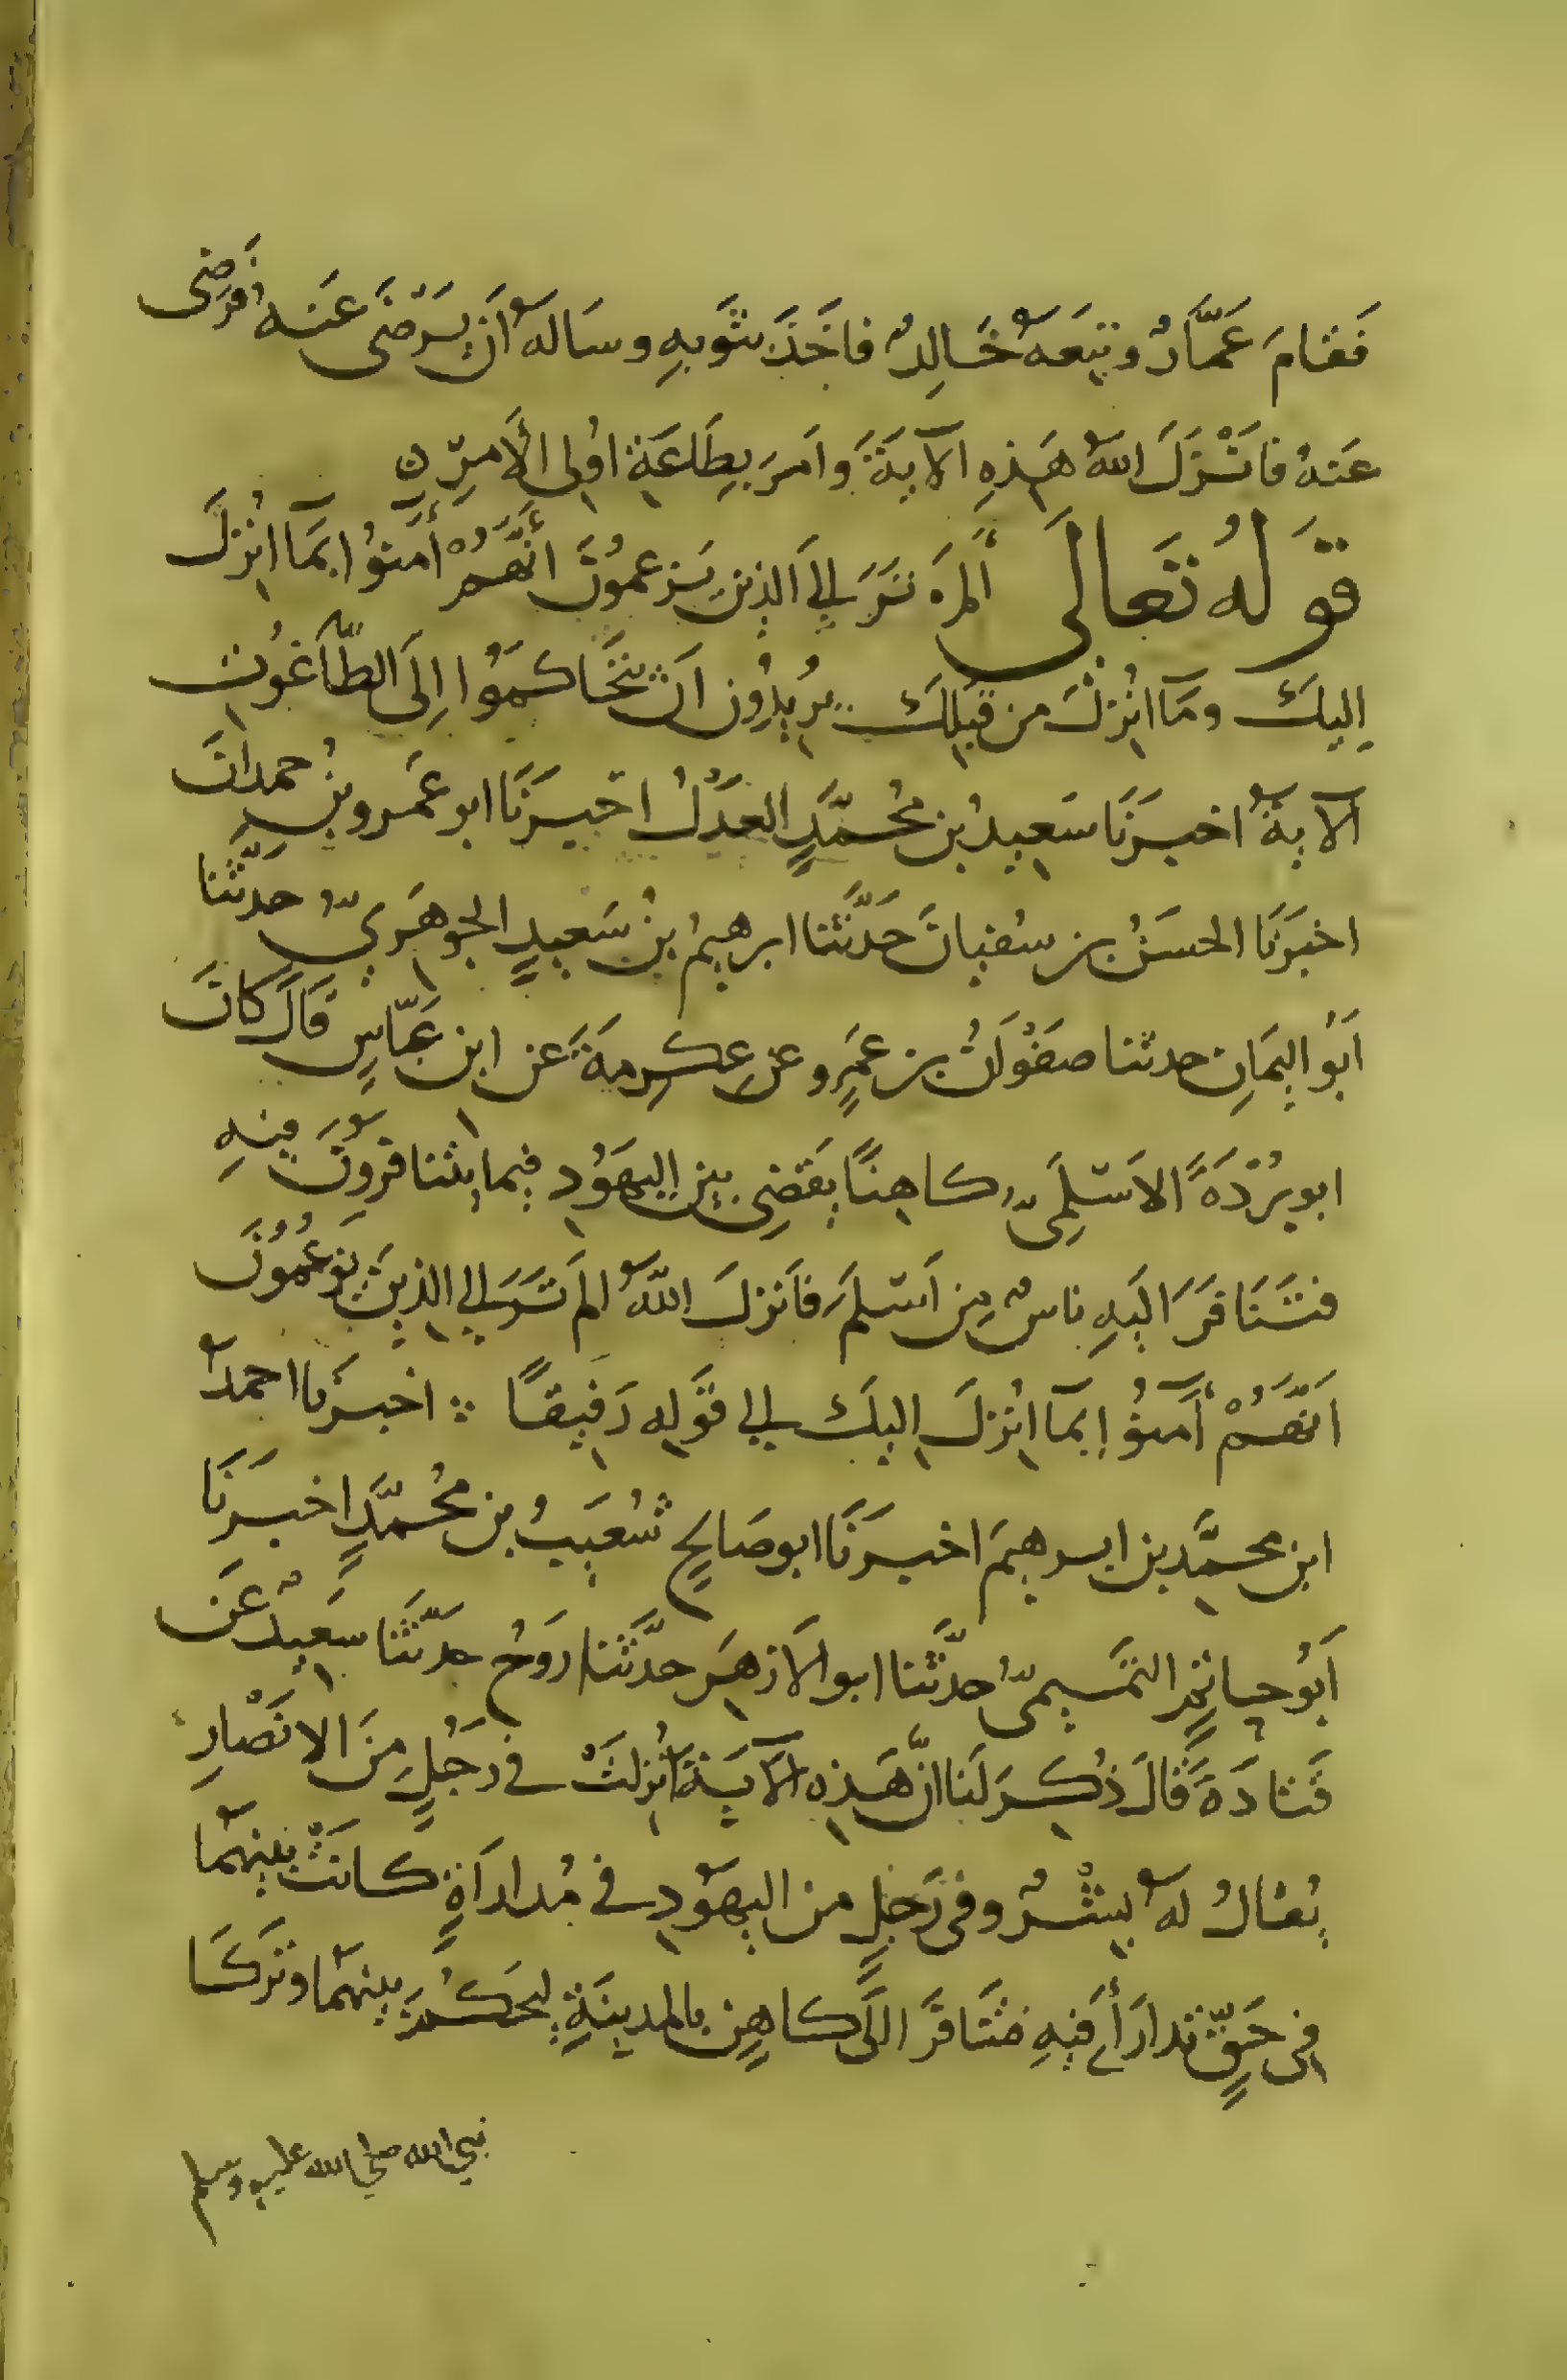 فَقَامَ عَمَّارٌ وتبعَهُ خَالِدٌ فاخَذَ بثَوبِهِ وسَالهُ اَن يَرْضَى عَنه فَرَضِى
عَنهُ فاَنْزَلَ اللهُ هَذِهِ الآيَةَ وامَرَ بِطَاعَةِ اوُلِى الأَمرِ ن
قَولهُ تَعالَى أَلمَ تَرَ اِلَى الَذِينَ يَزعمُونَ أَنَّهُمْ أمَنوُا بمَا انُزِلَ
اِليكَ ومَا انُزِلَ من قَبلِكَ يرُيدُون اَن يتَحَاكمَوُا اِلَى الطَّاغُوت
الآيةُ اخبرَنَا سَعِيدُ بن مُحمَّدٍ العَدْلُ اخبَرَنَا ابو عَمرو بنُ حمدانَ
اخبَرَنَا الحسَنُ بن سفيانَ حَدَّثنا ابرهيمُ بنُ سَعيدٍ الجوهَرِيّ حدَّثنا
اَبُو اليمَانِ حدثنا صفَوْانُ بن عمَرٍو عن عِكرِمةَ عَن ابن عبَّاسٍ قَالَ كانَ
ابو بُرْدَةَ الاَسْلَمِىُّ كاهِنًا يَقضِى بين اليهَوُدِ فيما يتنافروُنَ فيهِ
فتَنَافَرَ اليَهِ ناسٌ مِن اَسْلمَ فاَنزلَ اللّهُ الم تَرَ اِلى الذينَ يزَعمُوُنَ
اَنَّهُمْ أمَنوُا بمَا انُزِلَ اِليكَ اِلى قوَلِه رَفِيقًا ∴ اخبرَنا احمدُ
ابن محمَّد بن ابرهيمَ اخبرَنَا ابو صَالحٍ شعُيَبُ بن مُحمَّدٍ اخبرَنَا
اَبُو حاتمٍ التمَّيمىُّ حدَّثنا ابو الاَزهَر حدَّثَنا رَوَحُ حدثَّنا سَعيدٌ عَن
قَتادَةَ قَالَ ذُكِرَ لَنا انَّ هَذِه الآيَةَ انُزِلَتْ فى رَجُلٍ مِنَ الانَصْارِ
يُقالُ لهُ بشرٌ وفى رَجُلٍ من اليهَودِ فى مُدارَاَةٍ كانَتْ بينهمَا
فى حَقٍّ تدارَأَ فيهِ فتَنَافَرَا اِلَى كاهِنٍ بالمدينَةِ ليحَكُمَ بينهمَا وتركَا
نبي الله صلى الله عليه وسلم